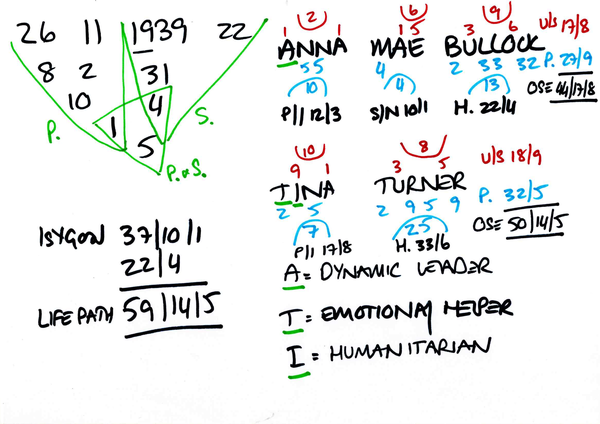 26 11 1939 22
8 2 31
10 4
P. 1 S.
5
P. & S.
ISYGON 37/10/1
22/4
LIFE PATH 59/14/5
2 6 9
1 1 1 5 3 6 U/S 17/8
ANNA MAE BULLOCK
5 5 4 2 3 3 3 2 P. 27/9
10 4 13 OSE 44/17/8
P/I 12/3 S/N 10/1 H. 22/4
10 8
9 1 3 5 U/S 18/9
TINA TURNER
2 5 2 9 5 9 P. 32/5
7 25 OSE 50/14/5
P/I 17/8 H. 33/6
A = DYNAMIC LEADER
T = EMOTIONAL HELPER
I = HUMANITARIAN